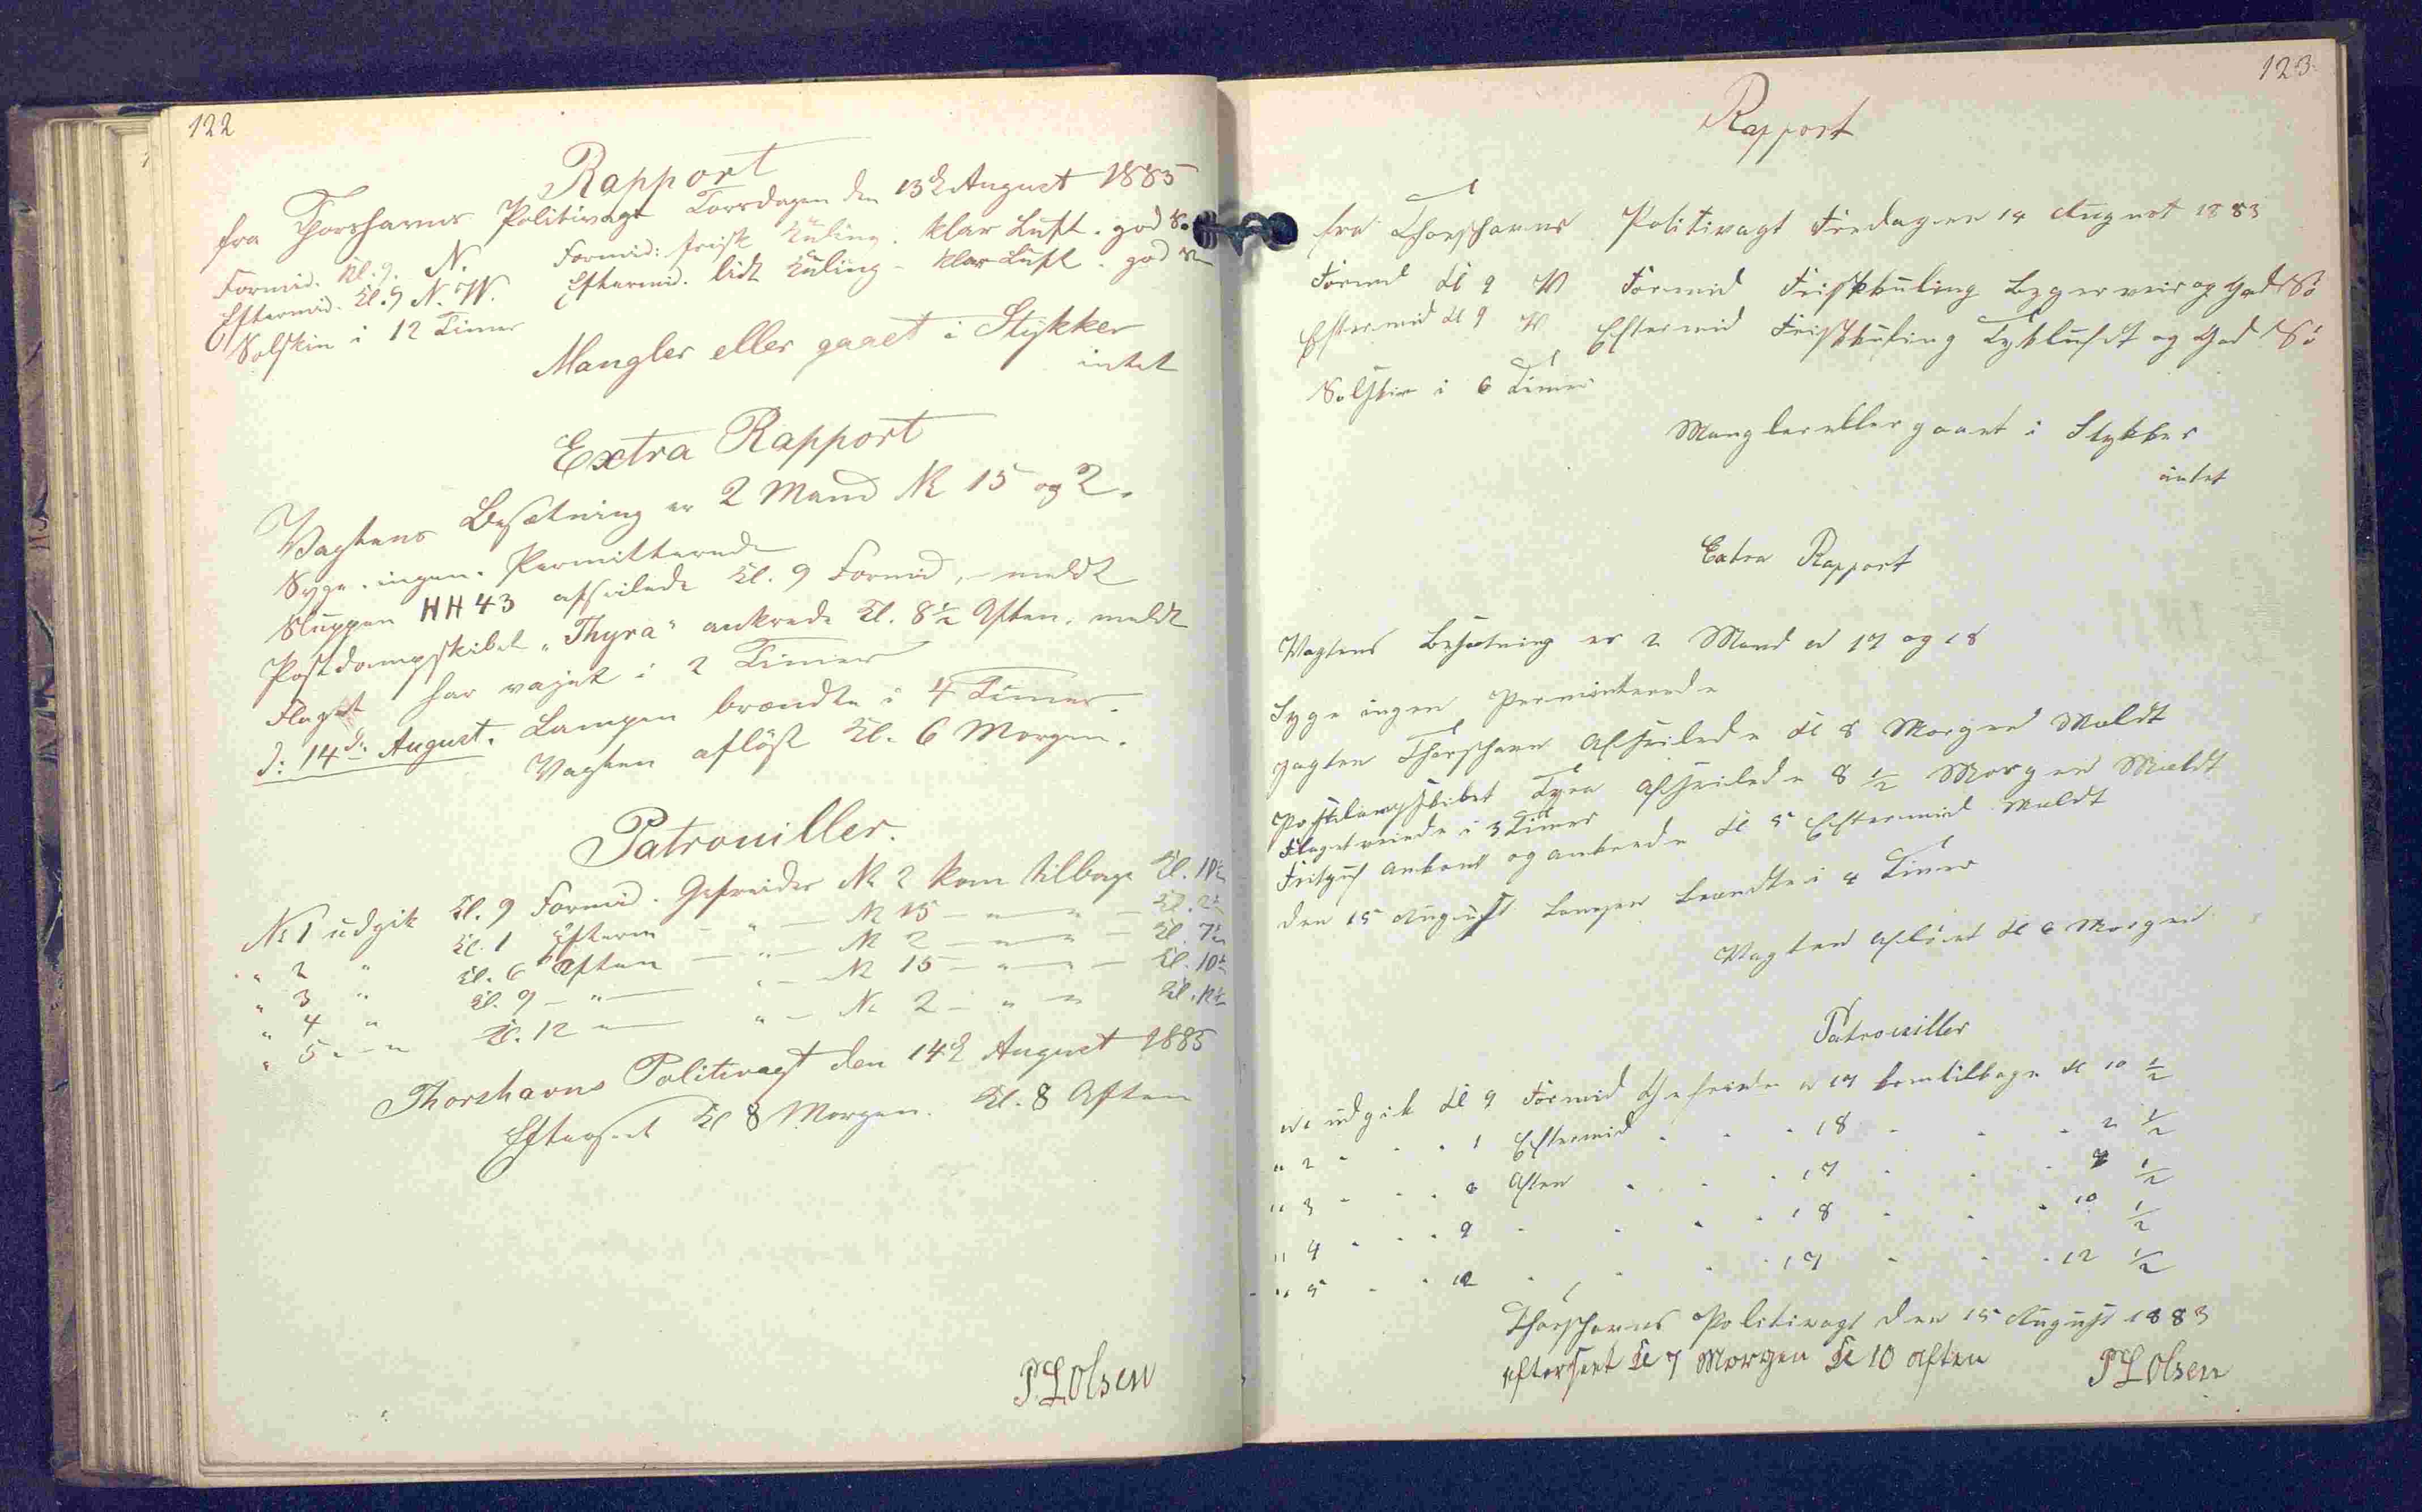 122
Rapport
fra Thorshavns Politivagt Torsdagen den 13d August 1885
Formid. Kl. 9. N. Formid: frisk Kuling. klar Luft. god Sø
Eftermid. Kl. 9 N.W. Eftermid. lidt Kuling - klar Luft. god Sø
Solskin i 12 Timer
Mangler eller gaaet i Stykker
intet
Extra Rapport
Vagtens Besætning er 2 Mand No 15 og 2.
Syge. ingen. Permitterede
Sluppen HH 43 afseilede Kl. 9 Formid, - meldt
Postdampskibet "Thyra" ankrede Kl. 8 1/2 Aften. meldt
Flaget har vajet i 2 Timer
d: 14d August. Lampen brændte i 4 Timer.
Vagten afløst Kl. 6 Morgen.
Patrouiller.
No 1 udgik Kl. 9 Formid. Gefreider No 2 kom tilbage Kl. 10 1/2
" 2 " Kl. 1 Efterm - " - No 15 - " - " - Kl. 2 1/2
" 3 " Kl. 6 Aften - " - No 2 - " - " - Kl. 7 1/2
" 4 " Kl. 9 - " - " - No 15 - " - " - Kl. 10 1/2
" 5 - " Kl. 12 " - " - No 2 - " - " Kl. 12 1/2
Thorshavns Politivagt den 14d August 1885
Efterseet Kl 8 Morgen. Kl. 8 Aften
P. L Olsen
123
Rapport
fra Thorshavns Politivagt Fredagen 14 August 1885
Formd Kl 9 W Formid Friskkuling Bygerveir og God Sø
Eftermid Kl 9 W Eftermid Friskkuling Tykluft og God Sø
Solskin i 6 Timer
Mangler eller gaaet i Stykker
intet
Extra Rapport
Vagtens Besætning er 2 Mand No 17 og 18
Syge ingen Permiterede
Jagten Thorshavn Afseilede Kl 8 Morgen Meldt
Postdampskibet Tyra Afseilede 8 1/2 Morgen Meldt
Flaget veiede i 3 Timer
ankom og ankrede Kl 5 Eftermid Meldt
den 15 August Lampen brændte i 4 Timer
Vagten Afløset Kl 6 Morgen
Patrouiller
No 1 udgik Kl 9 Formid Gefreider No 17 kom tilbage Kl 10 1/2
" 2 " " " 1 Eftermid " " " 18 " " " 2 1/2
" 3 " " " 6 Aften " " " 17 " " " 7 1/2
" 4 " " " 9 " " " " 18 " " " 10 1/2
" 5 " " 12 " " " 17 " " " 12 1/2
Thorshavns Politivagt den 15 August 1885
efterseet Kl 7 Morgen Kl 10 Aften
P L Olsen